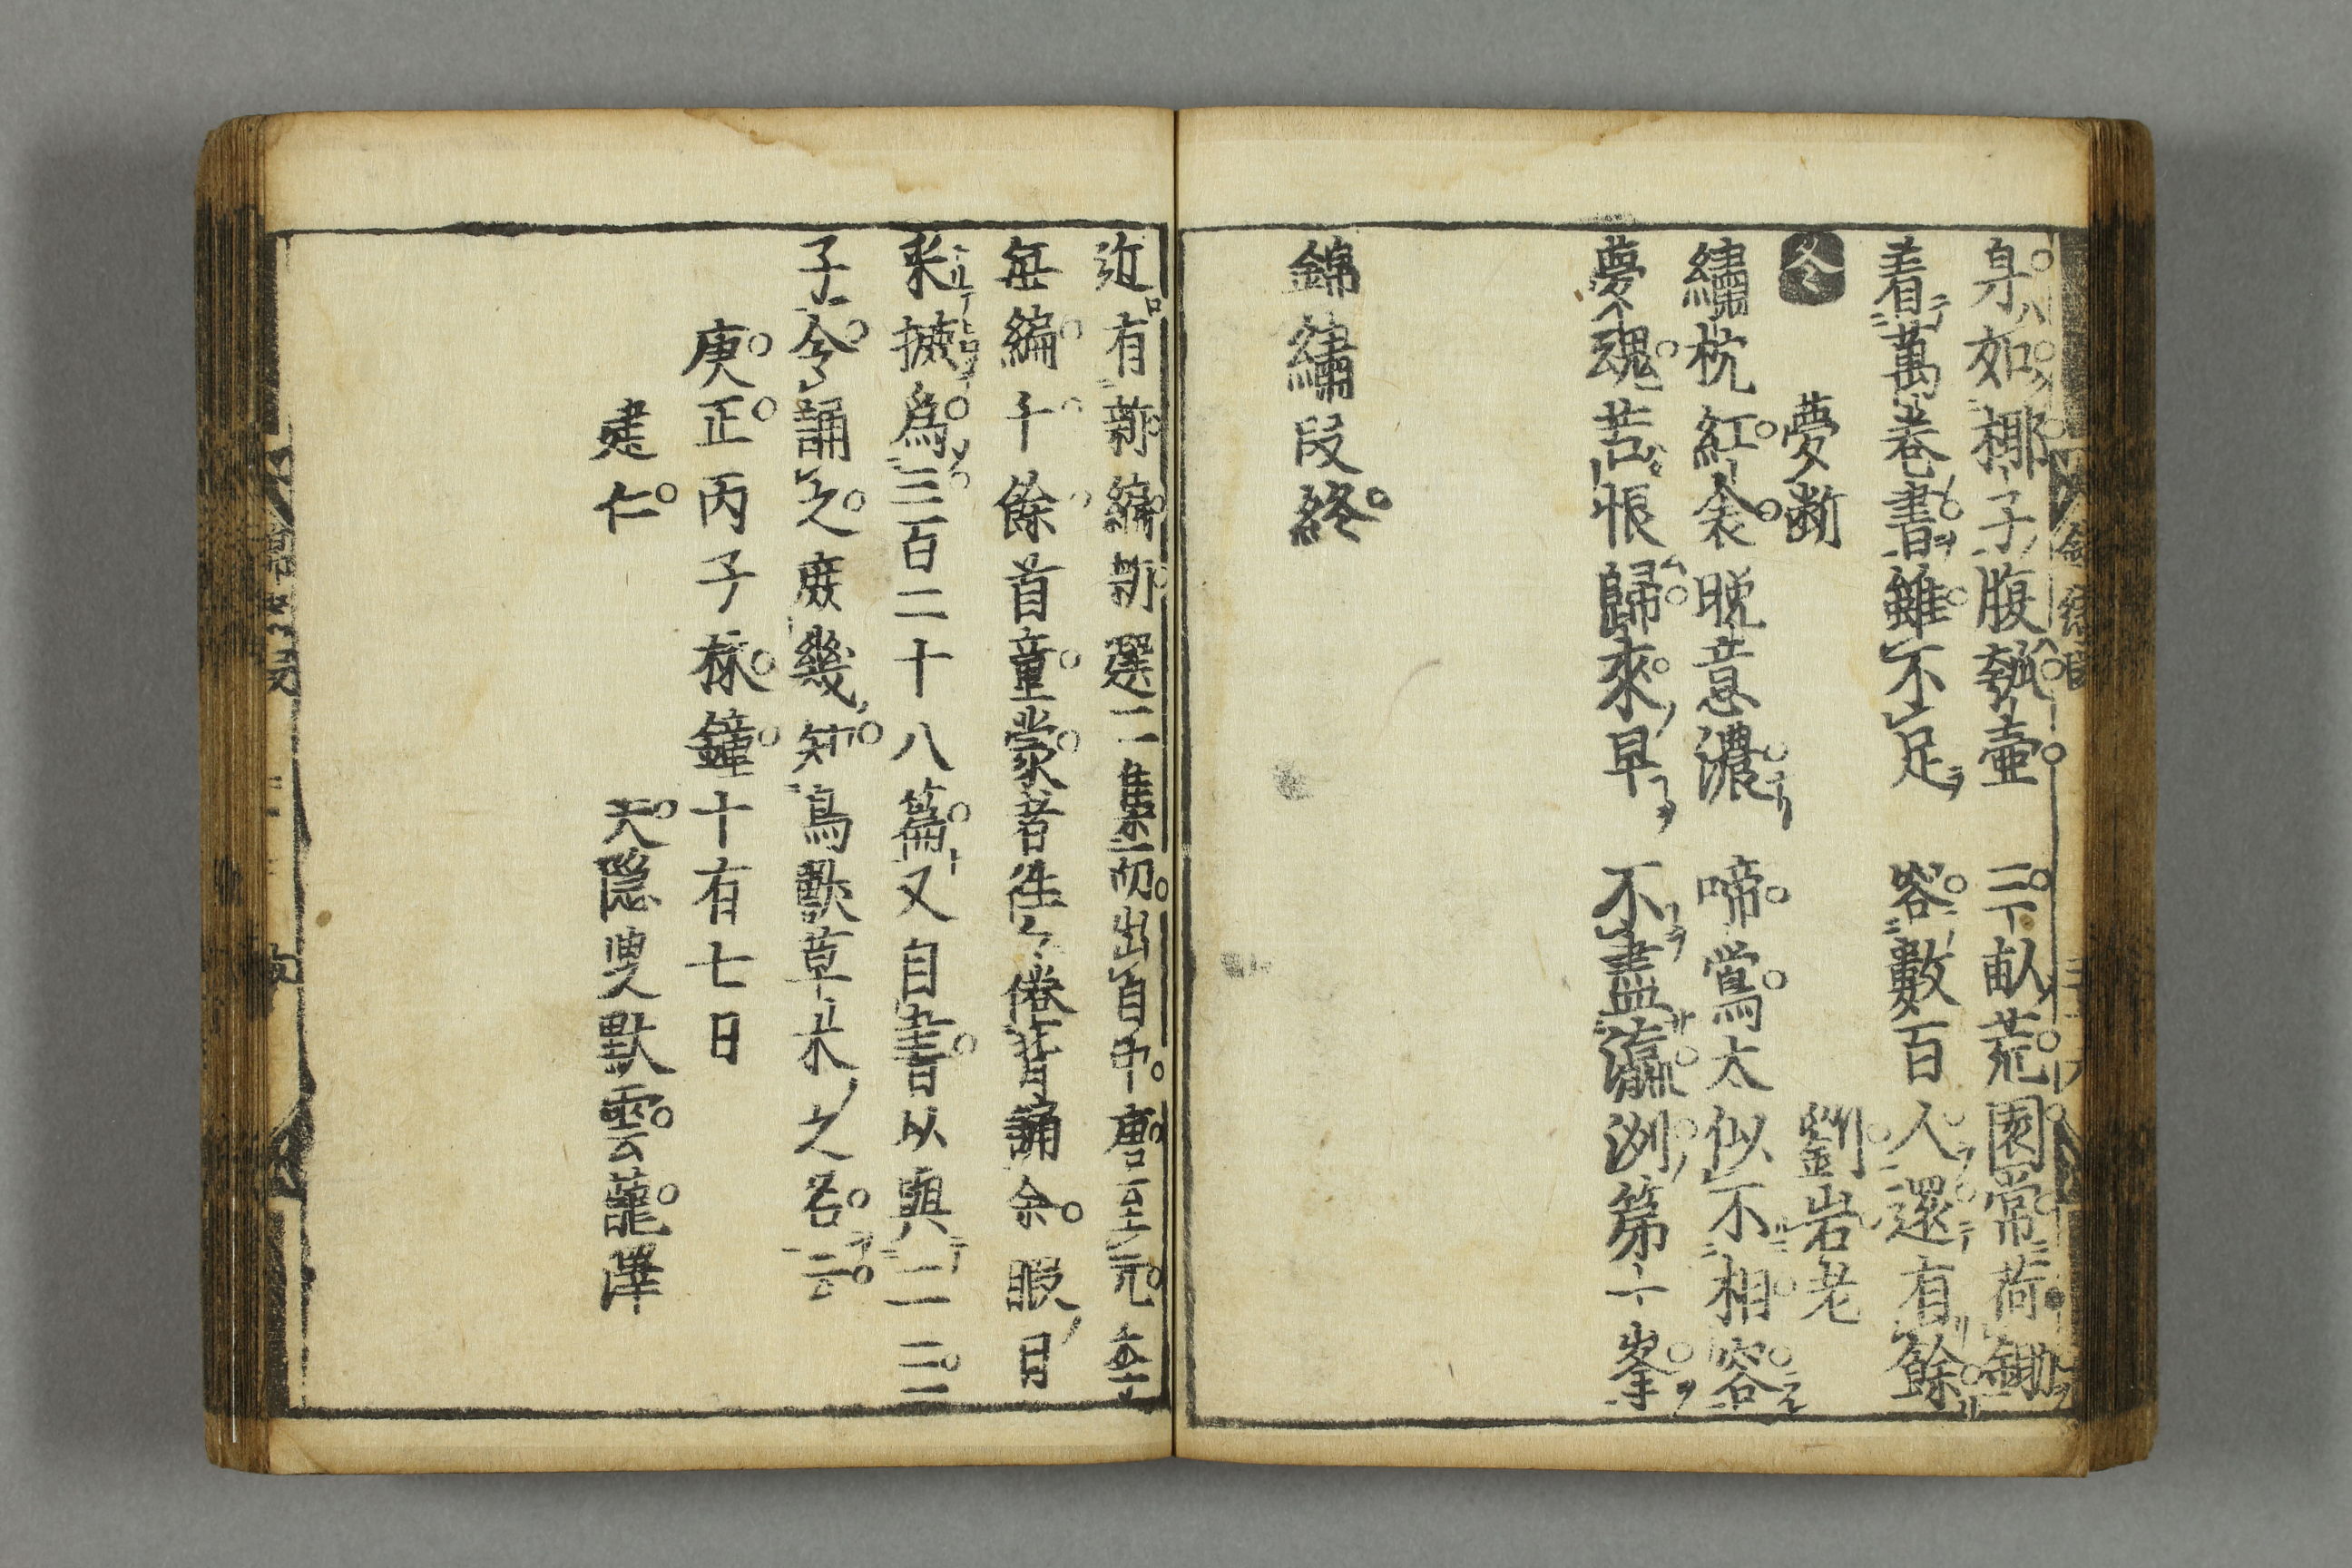 身如椰子腹瓠壷 三畒荒園常荷鋤
着萬巻書雖不足 容數百人還有餘
今 夢断 劉岩老
繡枕紅衾晩意濃 啼鶯太似不相容
夢魂苦恨歸來早 不盡瀛洲第一峯
錦繡段終
近有新編新選二集切出自中唐至元季
毎編千餘首童蒙者徃々倦背誦余暇日
釆摭爲三百二十八篇又自書以與一二三
子令誦之庻幾知鳥獸草木之名云
庚正丙子林鐘十有七日
建仁 天隠叟默雲龍澤